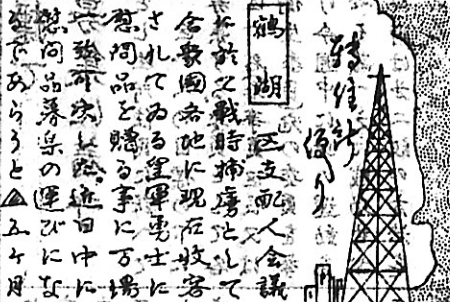 轉住所
便り
鶴湖 区支配人会議
に於て戦時捕虜として
合衆國各地に現在收容
されてゐる皇軍勇士に
慰問品を贈る事に万場
一致可決した。近日中に
慰問品募集の運びにな
るであらうと△五ヶ月